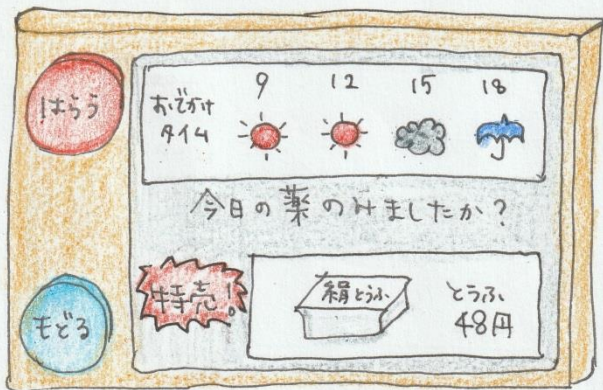 はらう
おでかけタイム
9 12 15 18
今日の薬のみましたか?
特売!
絹とうふ
とうふ
48円
もどる